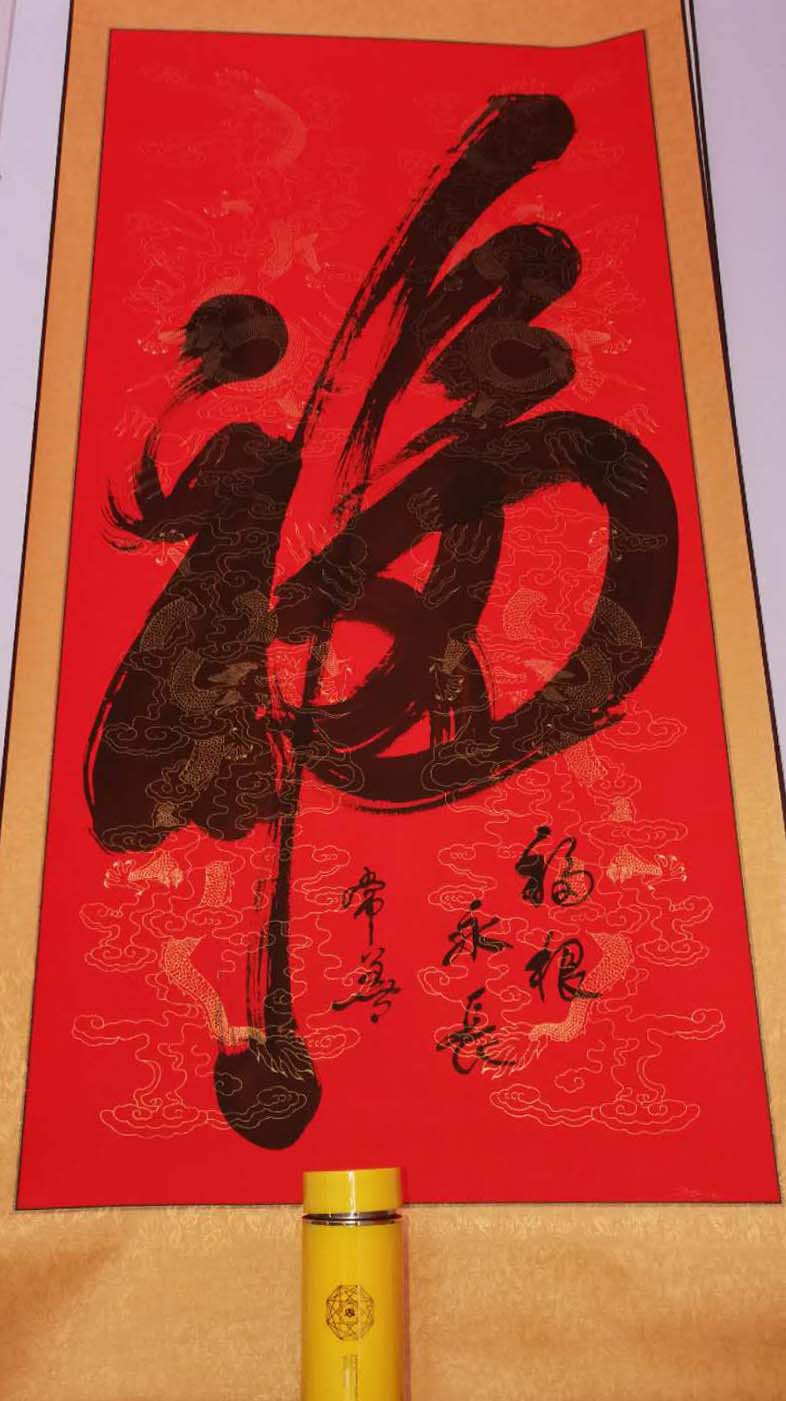 福
福根
永長
常善